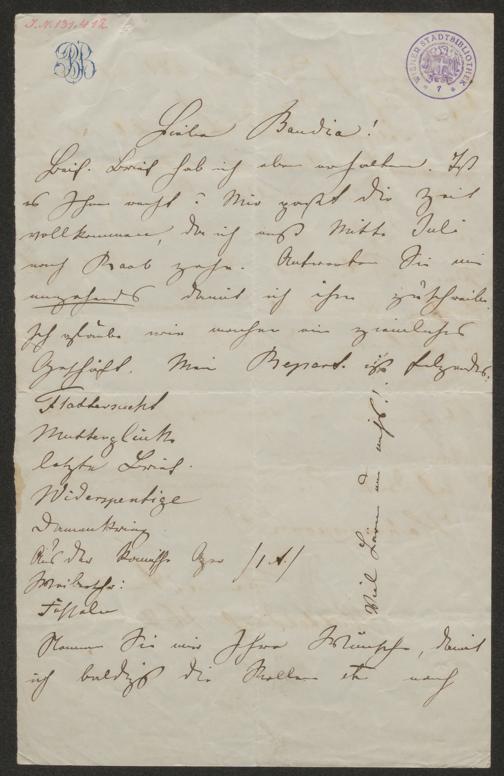 J.N. 131.412
BB
WIENER STADTBIBLIOTHEK
Liebe Bandia!
Beif. Brief hab ich eben erhalten. Ist
es Ihnen recht? Mir paßt die Zeit
vollkommen, da ich erst Mitte Juli
nach Raab gehe. Antworten Sie mir
umgehends damit ich ihm zuschreibe.
Ich glaube wir machen ein ziemliches
Geschäft. Mein Repert. ist folgendes.
Flattersucht
Mutterglück
letzte Brief.
Widerspenstige
Damenkrieg
Aus der komischen Oper /1 A./
Fesseln
Viel Lärm um nichts!
Nennen Sie mir Ihre Wünsche, damit
ich baldigst die Rollen etc nach